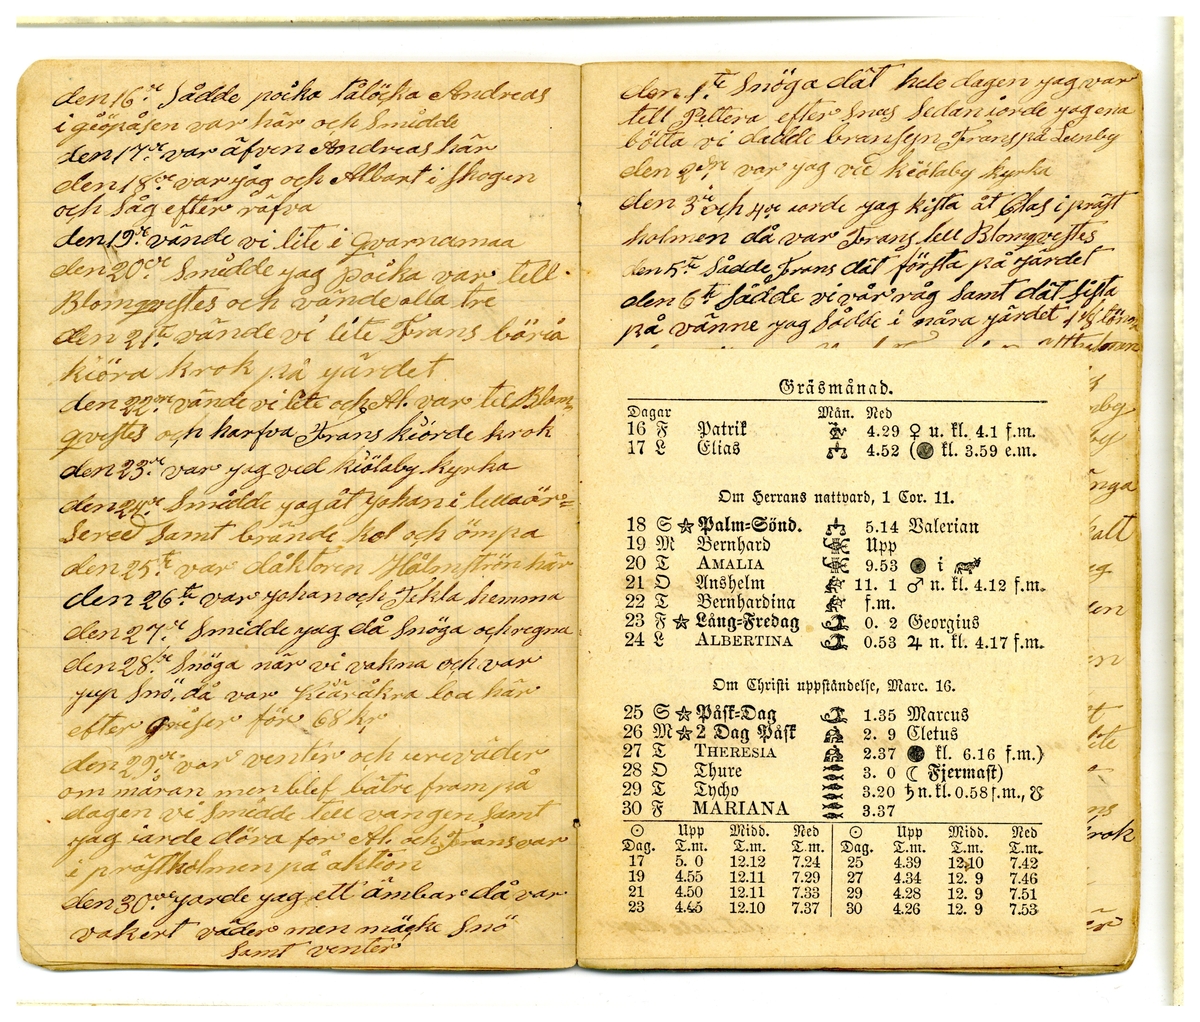 den 16de Sådde poika Andreas
i var här och Smidde
den 17de var äfven Andreas här
den 18de var yag och Albart i Skogen
och Såg efter räfva
den 19de vände vi lite i qvarnamaa
den 20de Smidde yag poika var tell
Blomqvestes och vände alla tre
den 21te vände vi lite Frans böria
kiöra krok på yärdet
den 22ne vände vi lite och Al. var tel Blom
qvestes och harfva Frans kiörde krok
den 23de var yag ved kiölaby kyrka
den 24de Smidde yag åt yohan i
Sered Samt brände kol och ömpa
den 25te var dåktoren Hålmströn här
den 26te var yohan och Tekla hemma
den 27de Smidde yag då Snöga och regna
den 28de Snöga när vi vakna och var
yup Snö, då var kiäråkra loa här
efter griser för 68 kr
den 29de var venter och ureväder
om måran men blef bätre fram på
dagen vi Smidde tell vangen Samt
yag iorde döra for Al. och Frans var
i prästholmen på aktion
den 30de yorde yag ett ämbar då var
vakert väder men mäcke Snö
Samt venter
den 1te Snöga dät hele dagen yag var
tell Pettera efter Snas Sedan iorde yag ena
bötta vi dedde Frans på Lunby
den 2dre var yag ved kiölaby kyrka
den 3de och 4de iorde yag kista åt Clas i präst
holmen då var Frans tell Blomqvestes
den 5te Sådde Frans dät första på yärdet
den 6te Sådde vi vår råg Samt dät Sista
på vänne yag Sådde i nåra yärdet
Gräsmånad.
Dagar Mån. Ned
16 F Patrik ♎ 4.29 ♀ u. kl. 4.1 f.m.
17 L Elias ♎ 4.52 (● kl. 3.59 e.m.
Om Herrans nattvard, 1 Cor. 11.
18 S ☆ Palm-Sönd. 5.14 Valerian
19 M Bernhard Upp
20 T AMALIA 9.53 ● i
21 O Anshelm 11. 1 ♂ n. kl. 4.12 f.m.
22 T Bernhardina f.m.
23 F ☆ Lång-Fredag 0. 2 Georgius
24 L ALBERTINA 0.53 ♃ n. kl. 4.17 f.m.
Om Christi uppståndelse, Marc. 16.
25 S ☆ Påsk-Dag 1.35 Marcus
26 M ☆ 2 Dag Påsk 2. 9 Cletus
27 T THERESIA 2.37 ● kl. 6.16 f.m.)
28 O Thure 3. 0 ☾ Fjermast)
29 T Tycho 3.20 ♄ n. kl. 0.58 f.m., ☋
30 F MARIANA 3.37
☉ Upp Midd. Ned ☉ Upp Midd. Ned
Dag. T.m. T.m. T.m. Dag. T.m. T.m. T.m.
17 5. 0 12.12 7.24 25 4.39 12.10 7.42
19 4.55 12.11 7.29 27 4.34 12. 9 7.46
21 4.50 12.11 7.33 29 4.28 12. 9 7.51
23 4.45 12.10 7.37 30 4.26 12. 9 7.53